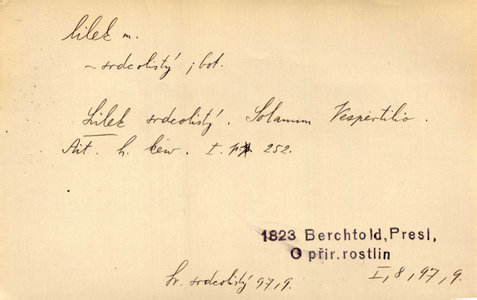 lilek m.
~ srdcolistý ; bot.
Lilek srdcolistý. Solanum Vespertilio.
Ait. h. kew. I. 252.
1823 Berchtold, Presl,
O přír. rostlin
I, 8, 97, 9.
Sr. srdcolistý 97, 9.